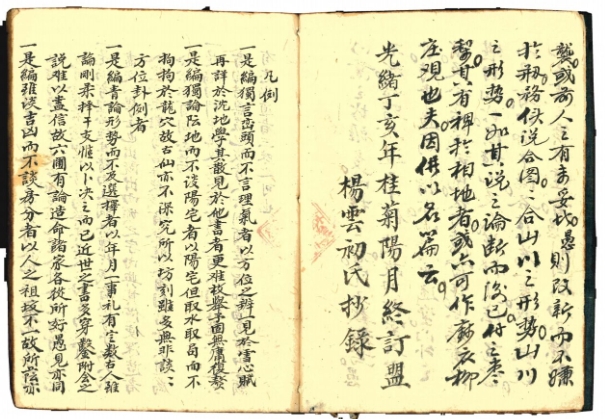 襲或前人之有未妥坎愚則改新而不嫌
於務使说合图之合山川之形势山川
之形势一如其说之論断而後已付之枣
梨其有裨於相地者或亦可作
庄观也夫因供以名篇云
光緒丁亥年桂菊陽月終訂盟
楊雲初氏抄錄
凡例
一是編獨言巒頭而不言理氣者以方位之辨一見於雪心賦
再詳於洗地學其散見於他書者更难枚舉予固無庸復贅
一是編獨論阴地而不淡陽宅者以陽宅但取水取局而不
拘拘於龍穴故古仙亦不深究所以坊刻雖多無非談
方位卦例者
一是編青論形势而不及選擇者以年月一事礼有定数古人雖
論剛柔择干支惟以小决之而已近世之書多穿鑿附会之
說难以盡信故六圃有論造命諸家各從所好愚見亦同
一是編雖淡吉凶而不談房分者以人之祖坟不一故所蔭亦